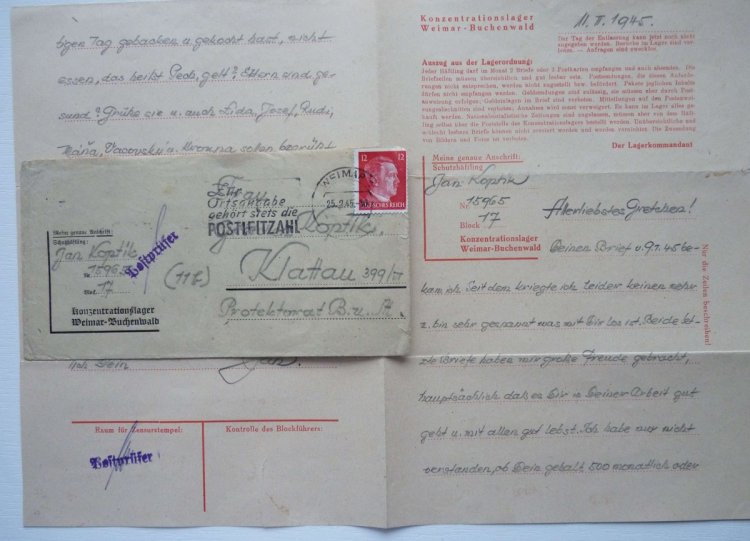 tigen Tag gebacken u. gekocht hast, nicht
essen, das heißt Pech, gelt? Eltern sind ge-
sund? Grüße sie u. auch Lida, Josef, Rudi,
sollen
Konzentrationslager
Weimar-Buchenwald
11. II. 1945.
Der Tag der Entlassung kann jetzt noch nicht
angegeben werden. Besuche im Lager sind ver-
boten. — Anfragen sind zwecklos.
Auszug aus der Lagerordnung:
Jeder Häftling darf im Monat 2 Briefe oder 2 Postkarten empfangen und auch absenden. Die
Briefzeilen müssen übersichtlich und gut lesbar sein. Postsendungen, die diesen Anforde-
rungen nicht entsprechen, werden nicht zugestellt bzw. befördert. Pakete jeglichen Inhalts
dürfen nicht empfangen werden. Geldsendungen sind zulässig, sie müssen aber durch Post-
anweisung erfolgen; Geldeinlagen im Brief sind verboten. Mitteilungen auf den Postanwei-
sungsabschnitten sind verboten, Annahme wird sonst verweigert. Es kann im Lager alles ge-
kauft werden. Nationalsozialistische Zeitungen sind zugelassen, müssen aber von dem Häft-
ling selbst über die Poststelle des Konzentrationslagers bestellt werden. Unübersichtliche und
schlecht lesbare Briefe können nicht zensiert werden und werden vernichtet. Die Zusendung
von Bildern und Fotos ist verboten.
Der Lagerkommandant
Meine genaue Anschrift:
Schutzhäftling
Jan Koptik
Nr. 15965
Block 17
Konzentrationslager
Weimar-Buchenwald
Allerliebstes Gretchen!
Deinen Brief v. 9.1.45 be-
kam ich. Seit dem kriegte ich leider keinen mehr
u. bin sehr gespannt was mit Dir los ist. Beide
Briefe haben mir große Freude gebracht,
hauptsächlich daß es Dir in Deiner Arbeit gut
geht u. mit allen gut lebst. Ich habe nur nicht
verstanden, ob Dein gehalt 500 monatlich oder
Nur die Zeilen beschreiben!
Zur
Ortsangabe
gehört stets die
POSTLEITZAHL
WEIMAR
25.2.45
12 12
Frau
Koptik
Klattau 399/II
Protektorat B. u. M.
Meine genaue Anschrift:
Schutzhäftling:
Jan Koptik
Nr. 15965
Block 17
Konzentrationslager
Weimar-Buchenwald
Postprüfer
Dein
Jan.
Raum für Zensurstempel:
Kontrolle des Blockführers:
Postprüfer